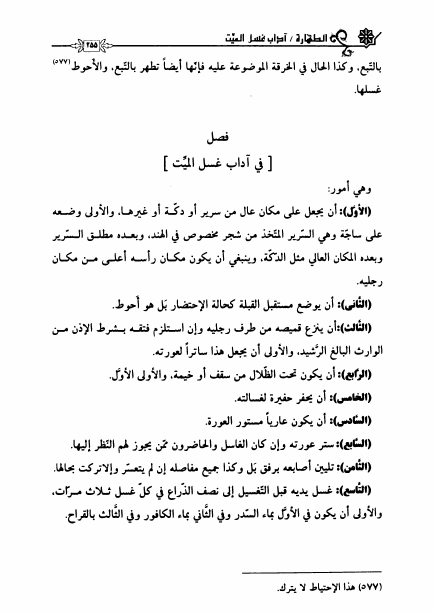 الطهارة / آداب غسل الميّت
٢٥٥
بالتّبع، وكذا الحال في الخرقة الموضوعة عليه فإنّها أيضاً تطهر بالتّبع، والأحوط(٥٧٧)
غسلها.
فصل
[ في آداب غسل الميّت ]
وهي أمور:
(الأوّل): أن يجعل على مكان عال من سرير أو دكّة أو غيرها، والأولى وضعه
على ساجّة وهي السّرير المتّخذ من شجر مخصوص في الهند، وبعده مطلق السّرير
وبعده المكان العالي مثل الدّكّة، وينبغي أن يكون مكان رأسه أعلى من مكان
رجليه.
(الثّاني): أن يوضع مستقبل القبلة كحالة الإحتضار بَل هو أحوط.
(الثّالث): أن ينزع قميصه من طرف رجليه وإن استلزم فتقه بشرط الإذن من
الوارث البالغ الرّشيد، والأولى أن يجعل هذا ساتراً لعورته.
(الرّابع): أن يكون تحت الظّلال من سقف أو خيمة، والأولى الأوّل.
(الخامس): أن يحفر حفيرة لغسالته.
(السّادس): أن يكون عارياً مستور العورة.
(السّابع): ستر عورته وإن كان الغاسل والحاضرون ممّن يجوز لهم النّظر إليها.
(الثّامن): تليين أصابعه برفق بَل وكذا جميع مفاصله إن لم يتعسّر وإلاتركت بحالها.
(التّاسع): غسل يديه قبل التّغسيل إلى نصف الذّراع في كلّ غسل ثلاث مرّات،
والأولى أن يكون في الأوّل بماء السّدر وفي الثّاني بماء الكافور وفي الثّالث بالقراح.
(٥٧٧) هذا الإحتياط لا يترك.